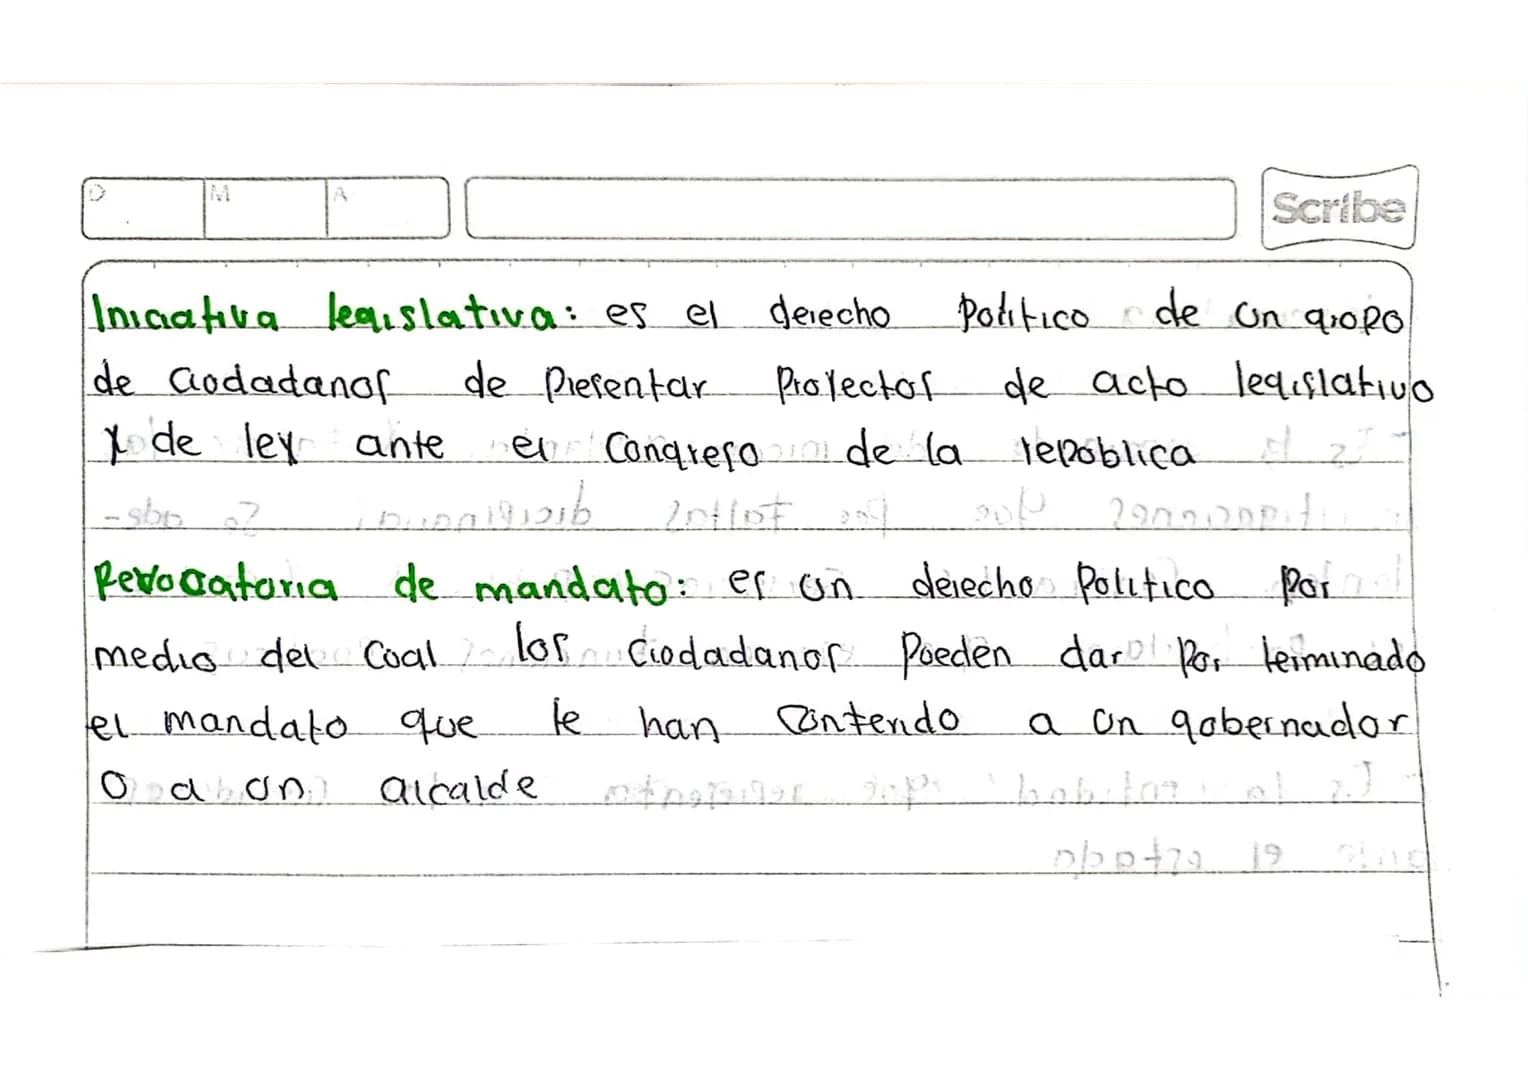 D M A Scribe
Iniciativa legislativa: es el derecho politico de un grupo
de ciudadanos de presentar proyectos de acto legislativo
y de ley ante el Congreso de la republica
Revocatoria de mandato: es un derecho politico por
medio del cual los ciudadanos pueden dar por terminado
el mandato que le han contendo a un gobernador
o a un alcalde